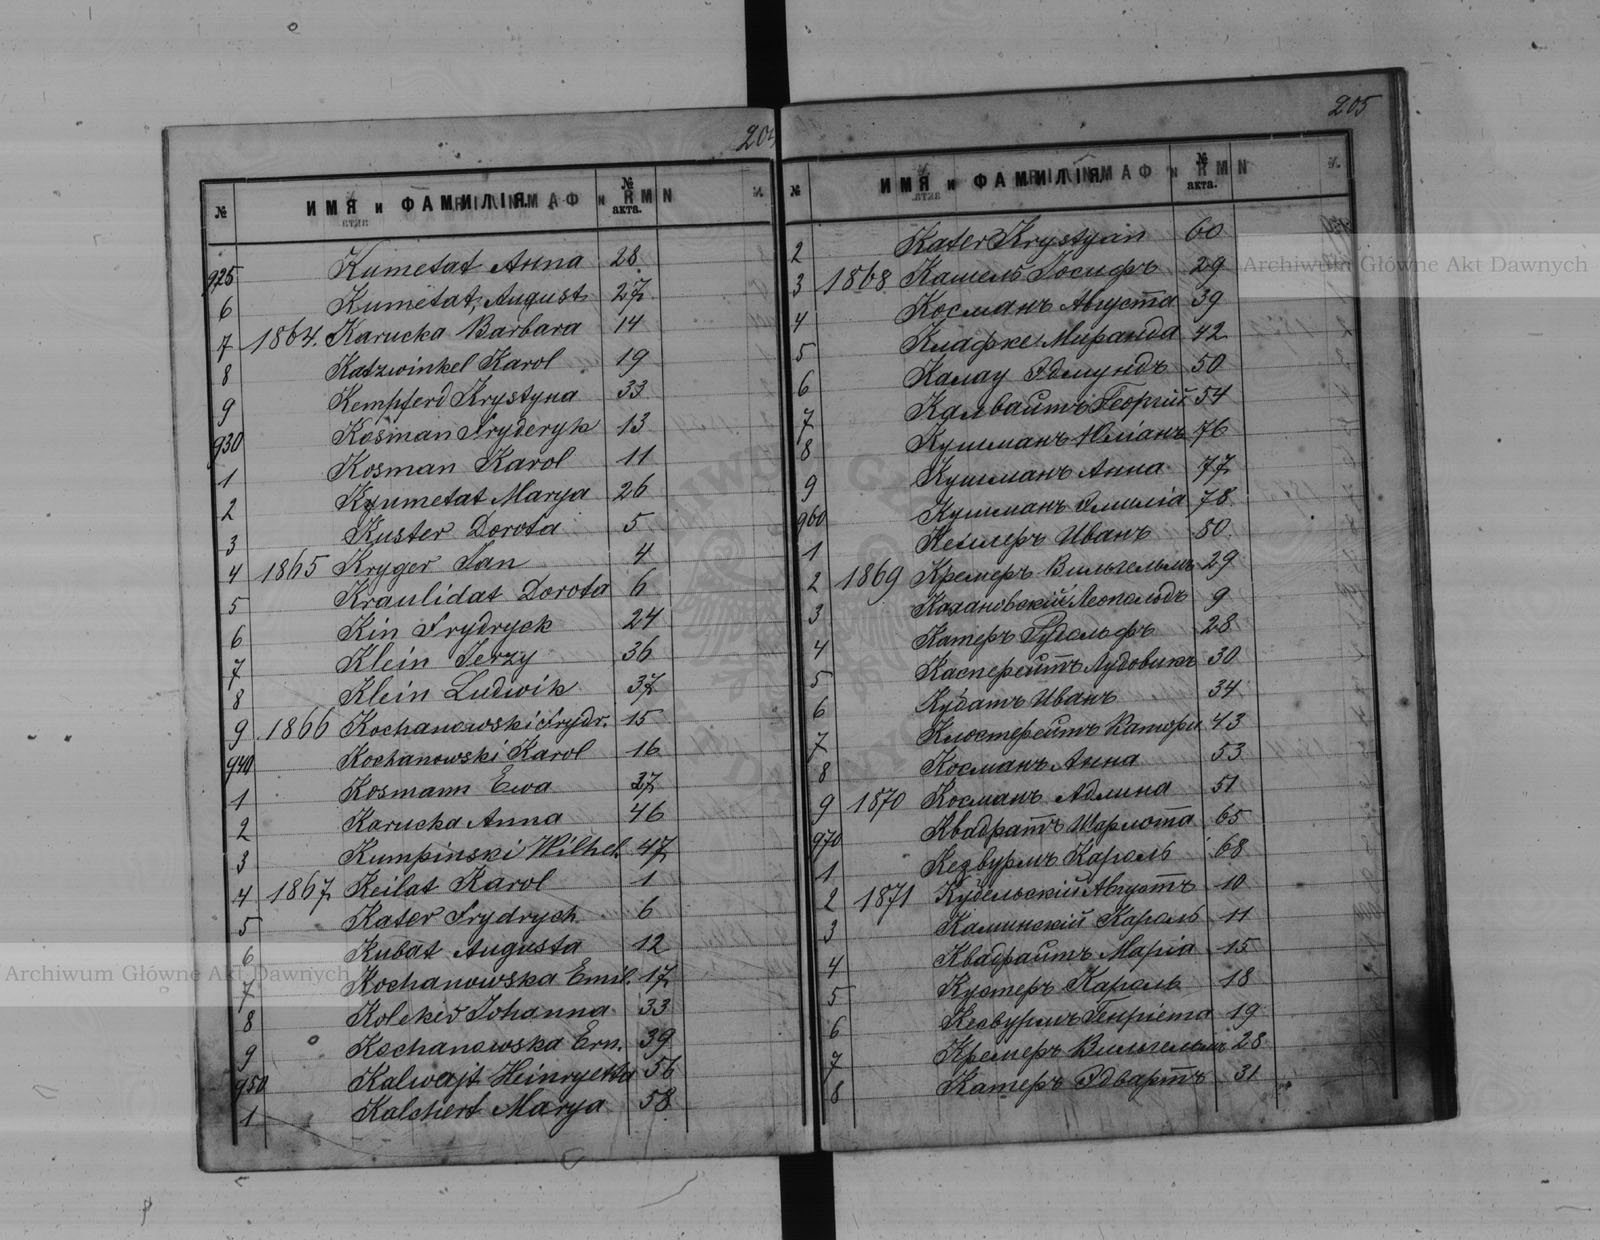 204
№ ИМЯ и ФАМИЛІЯ № акта.
925 Kumetat Anna 28
6 Kumetat August 27
7 1864. Karucka Barbara 14
8 Katzwinkel Karol 19
9 Kempferd Krystyna 33
930 Kosman Fryderyk 13
1 Kosman Karol 11
2 Kyumetat Marya 26
3 Kuster Dorota 5
4 1865 Kryger Jan 4
5 Kraulidat Dorota 6
6 Kin Frydryck 24
7 Klein Jerzy 36
8 Klein Ludwik 37
9 1866 Kochanowski Frydr. 15
940 Kochanowski Karol 16
1 Kosmann Ewa 27
2 Karucka Anna 46
3 Kumpinski Wilhel. 47
4 1867 Keilat Karol 1
5 Kater Frydrych 6
6 Kubat Augusta 12
7 Kochanowska Emil. 17
8 Johanna 33
9 Kochanowska Ern. 39
950 Kalwajt Heinryetta 56
1 Kalchert Marya 58
205
№ ИМЯ и ФАМИЛІЯ № акта.
2 Kater Krystyan 60
3 1868 Камель Іосифъ 29
4 Косманъ Августа 39
5 Клафке Миранда 42
6 Калау Эдмундъ 50
7 Калвайтъ Георгій 54
8 Кушманъ Юліанъ 76
9 Кушманъ Анна 77
960 Кушманъ Эмилія 78
1 Иванъ 80
2 1869 Кремеръ Вильгельмъ 29
3 Кохановскій Леопольдъ 9
4 Катеръ Рудольфъ 28
5 Касперейтъ Лудовикъ 30
6 Кубатъ Иванъ 34
7 Клостерейтъ Катори 43
8 Косманъ Анна 53
9 1870 Косманъ Адлина 51
970 Квадратъ Шарлота 65
1 Кезвурмъ Кароль 68
2 1871 Кудельскій Августъ 10
3 Каминскій Кароль 11
4 Квадрайтъ Марія 15
5 Кустеръ Кароль 18
6 Кезвурмъ Генріета 19
7 Кремеръ Вильгельмъ 28
8 Катеръ Эдвартъ 31
Archiwum Główne Akt Dawnych
Archiwum Główne Akt Dawnych